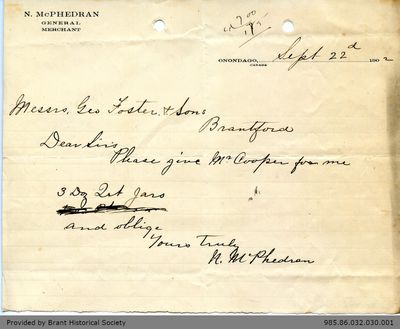 N. McPHEDRAN
GENERAL
MERCHANT
ONONDAGO, Sept 22d 1902
CANADA
Messrs, Geo Foster & Sons
Brantford
Dear Sirs
Please give Mr Cooper for me
3 Dz Qrt Jars
and oblige
Yours truly
N. McPhedran
Provided by Brant Historical Society 985.86.032.030.001